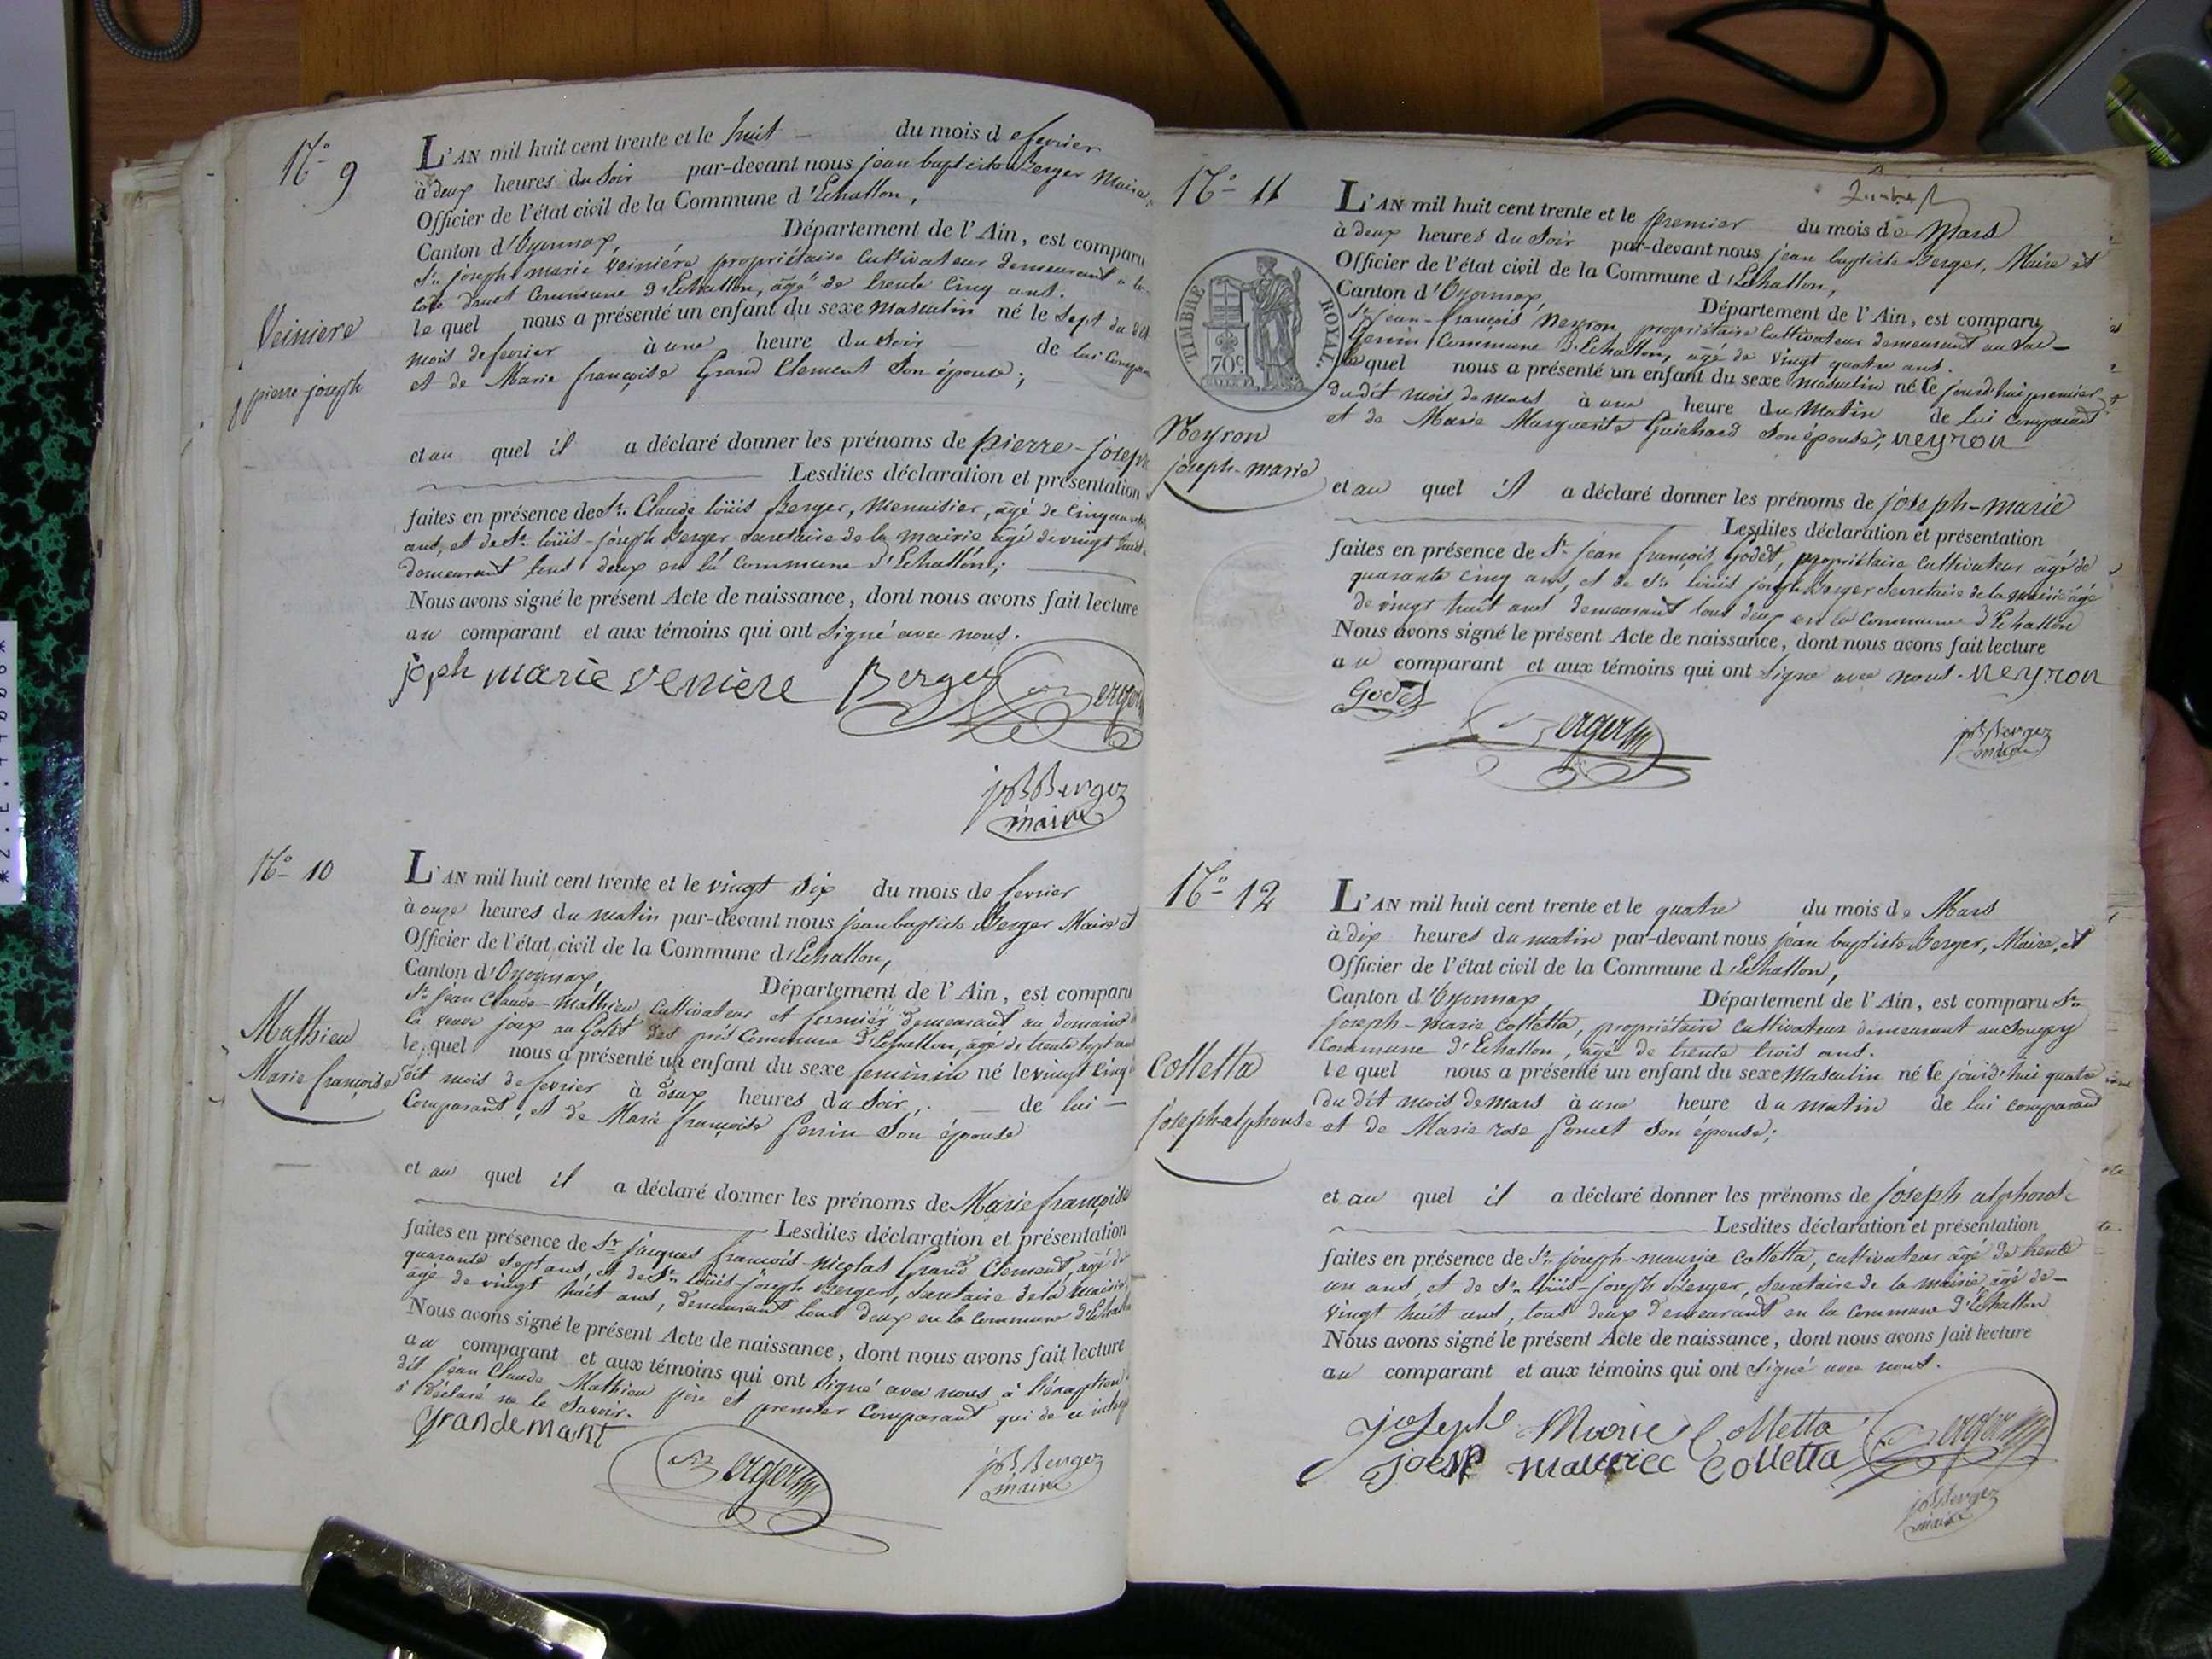 N° 9
L'AN mil huit cent trente et le huit du mois de fevrier
à deux heures du soir par-devant nous jean baptiste Berger Maire
Officier de l'état civil de la Commune d'Echallon,
Canton d'Oyonnax, Département de l'Ain, est comparu
Sr. joseph marie Veiniére propriétaire Cultivateur demeurant a la
Commune d'Echallon, âgé de trente cinq ans.
Veiniere
pierre joseph
le quel nous a présenté un enfant du sexe Masculin né le sept du dit
mois de fevrier à une heure du soir de lui Compa
et de Marie françoise Grand Clement Son épouse;
et au quel il a déclaré donner les prénoms de pierre-joseph
Lesdites déclaration et présentation
faites en présence de Sr. Claude loüis Berger, Menuisier, âgé de Cinquante
ans, et de Sr. loüis-joseph Berger Secretaire de la mairie âgé de vingt huit
demeurant tous deux en la Commune d'Echallon;
Nous avons signé le présent Acte de naissance, dont nous avons fait lecture
au comparant et aux témoins qui ont Signé avec nous.
joph marie veniere Berger Berger
jBBerger
maire
N° 10
L'AN mil huit cent trente et le vingt six du mois de fevrier
à onze heures du matin par-devant nous jean baptiste Berger Maire et
Officier de l'état civil de la Commune d'Echallon,
Canton d'Oyonnax, Département de l'Ain, est comparu
Sr. jean Claude-Mathieu Cultivateur et fermier demeurant au domaine d
la veuve joux au des prés Commune d'Echallon, âgé de trente sept ans
Mathieu
Marie françoise
le quel nous a présenté un enfant du sexe feminin né le vingt Cinq
dit mois de fevrier à deux heures du Soir, de lui
Comparant, et de Marie françoise perrin Son épouse
et au quel il a déclaré donner les prénoms de Marie françoise
Lesdites déclaration et présentation
faites en présence de Sr. jacques françois-nicolas Grand Clement, âgé de
quarante sept ans, et de Sr. loüis-joseph Berger, Secretaire de la mairie
âgé de vingt huit ans, demeurant tous deux en la Commune d'Echallon
Nous avons signé le présent Acte de naissance, dont nous avons fait lecture
au comparant et aux témoins qui ont Signé avec nous à l'éxception
dit jean Claude Mathieu père et premier Comparant qui de ce interp
a déclaré ne le Savoir.
Grandemant
Berger
jBBerger
maire
N° 11
L'AN mil huit cent trente et le premier du mois de Mars
à deux heures du soir par-devant nous jean baptiste Berger, Maire et
Officier de l'état civil de la Commune d'Echallon,
Canton d'Oyonnax, Département de l'Ain, est comparu
TIMBRE ROYAL
70c
Sr. jean-françois Neyron, propriétaire Cultivateur demeurant au Lac
Genin Commune d'Echallon, âgé de vingt quatre ans.
le quel nous a présenté un enfant du sexe masculin né le jourd'hui premier
du dit mois de mars à une heure du Matin de lui comparant
et de Marie Marguerite Guichard Son épouse; neyron
Neyron
joseph-marie
et au quel il a déclaré donner les prénoms de joseph-marie
Lesdites déclaration et présentation
faites en présence de Sr. jean françois Godet, propriétaire Cultivateur âgé de
quarante cinq ans, et de Sr. loüis joseph Berger Secretaire de la mairie âgé
de vingt huit ans demeurant tous deux en la Commune d'Echallon
Nous avons signé le présent Acte de naissance, dont nous avons fait lecture
au comparant et aux témoins qui ont Signé avec nous. neyron
Godet
Berger
jBBerger
maire
N° 12
L'AN mil huit cent trente et le quatre du mois de Mars
à dix heures du matin par-devant nous jean baptiste Berger, Maire, et
Officier de l'état civil de la Commune d'Echallon,
Canton d'Oyonnax, Département de l'Ain, est comparu Sr.
joseph-marie Colletta, propriétaire Cultivateur demeurant au Sougey
Commune d'Echallon, âgé de trente trois ans.
Colletta
joseph alphonse
le quel nous a présenté un enfant du sexe Masculin né le jourd'hui quatre
du dit mois de mars à une heure du matin de lui comparant
et de Marie rose poncet Son épouse;
et au quel il a déclaré donner les prénoms de joseph alphonse
Lesdites déclaration et présentation
faites en présence de Sr. joseph-maurice Colletta, cultivateur âgé de trente
un ans, et de Sr. loüis-joseph Berger, Secretaire de la mairie âgé de
vingt huit ans, tous deux demeurant en la Commune d'Echallon
Nous avons signé le présent Acte de naissance, dont nous avons fait lecture
au comparant et aux témoins qui ont Signé avec nous.
joseph Marie Colletta Berger
joesp maurice Colletta
jBBerger
maire